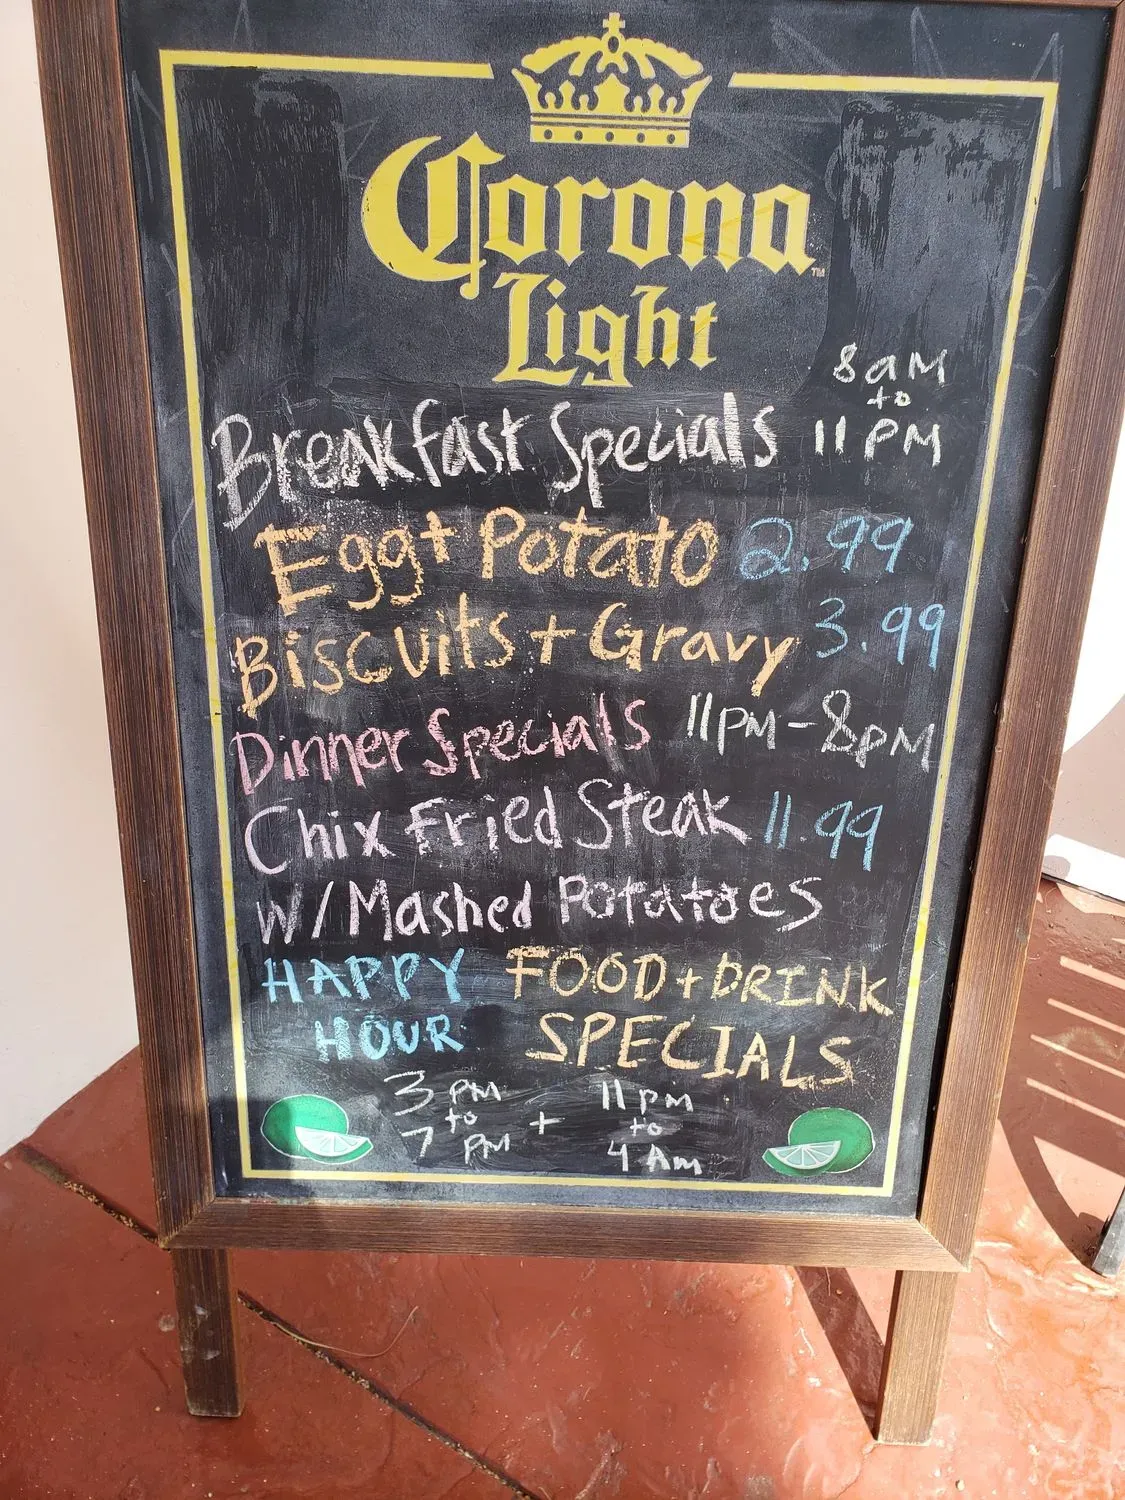 Corona
Light
TM
8am
to
Breakfast Specials 11 PM
Egg + Potato 2.99
Biscuits + Gravy 3.99
Dinner Specials 11PM-8PM
Chix Fried Steak 11.99
W/Mashed Potatoes
HAPPY FOOD + DRINK
HOUR SPECIALS
3 PM 11 pm
to + to
7 PM 4 Am